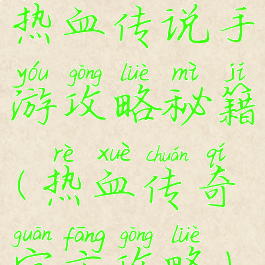 热血传说手
yóu gōng lüè mì jí
游攻略秘籍
rè xuè chuán qí
(热血传奇
guān fāng gōng lüè
官方攻略)